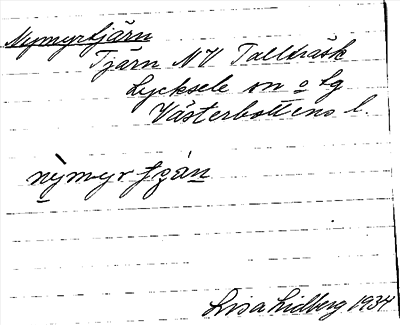 Nymyrtjärn
Tjärn NV Tallträsk
Lycksele sn o lg
Västerbottens l.
nỳmyr tjạ́n
Lisa Lidberg 1934